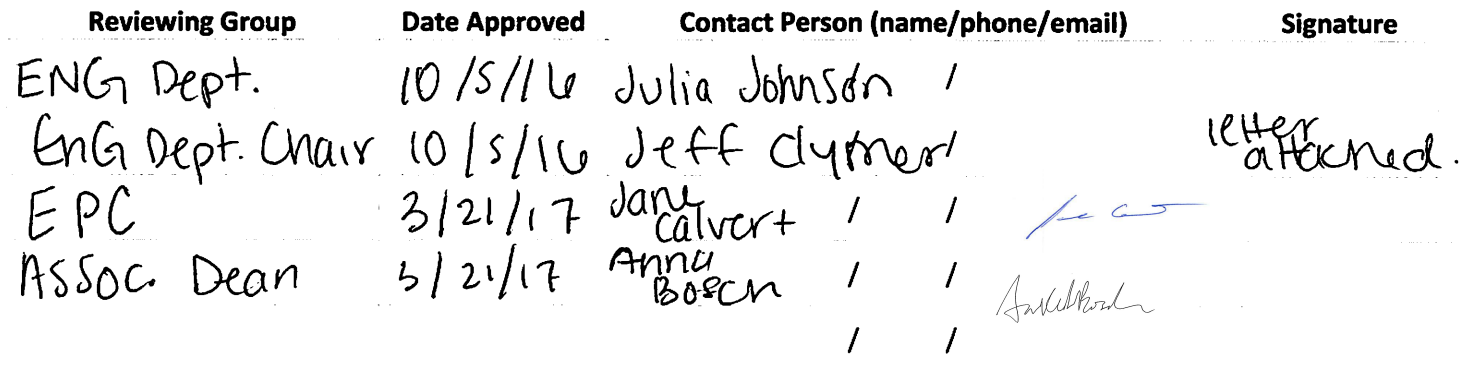 Reviewing Group Date Approved Contact Person (name/phone/email) Signature
ENG Dept. 10/5/16 Julia Johnson /
EnG Dept. Chair 10/5/16 Jeff Clymer / letter attached.
EPC 3/21/17 Jane Calvert / /
Assoc. Dean 3/21/17 Anna Bosch / /
/ /